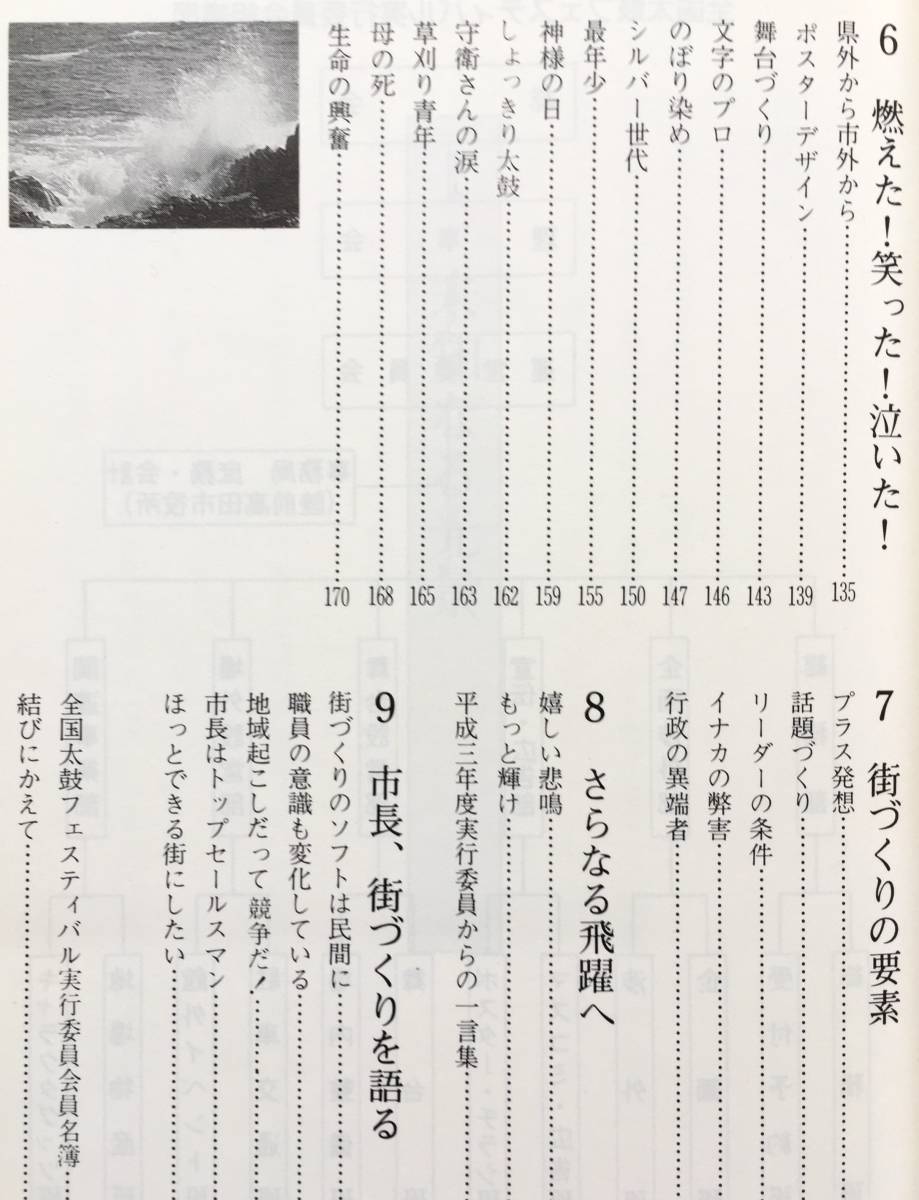 6　燃えた！笑った！泣いた！
県外から市外から……135
ポスターデザイン……139
舞台づくり……143
文字のプロ……146
のぼり染め……147
シルバー世代……150
最年少……155
神様の日……159
しょっきり太鼓……162
守衛さんの涙……163
草刈り青年……165
母の死……168
生命の興奮……170
7　街づくりの要素
プラス発想……
話題づくり……
リーダーの条件……
イナカの弊害……
行政の異端者……
8　さらなる飛躍へ
嬉しい悲鳴……
もっと輝け……
平成三年度実行委員からの一言集……
9　市長、街づくりを語る
街づくりのソフトは民間に……
職員の意識も変化している……
地域起こしだって競争だ！……
市長はトップセールスマン……
ほっとできる街にしたい……
全国太鼓フェスティバル実行委員会員名簿……
結びにかえて……
事務局　庶務・会計
（陸前高田市役所）